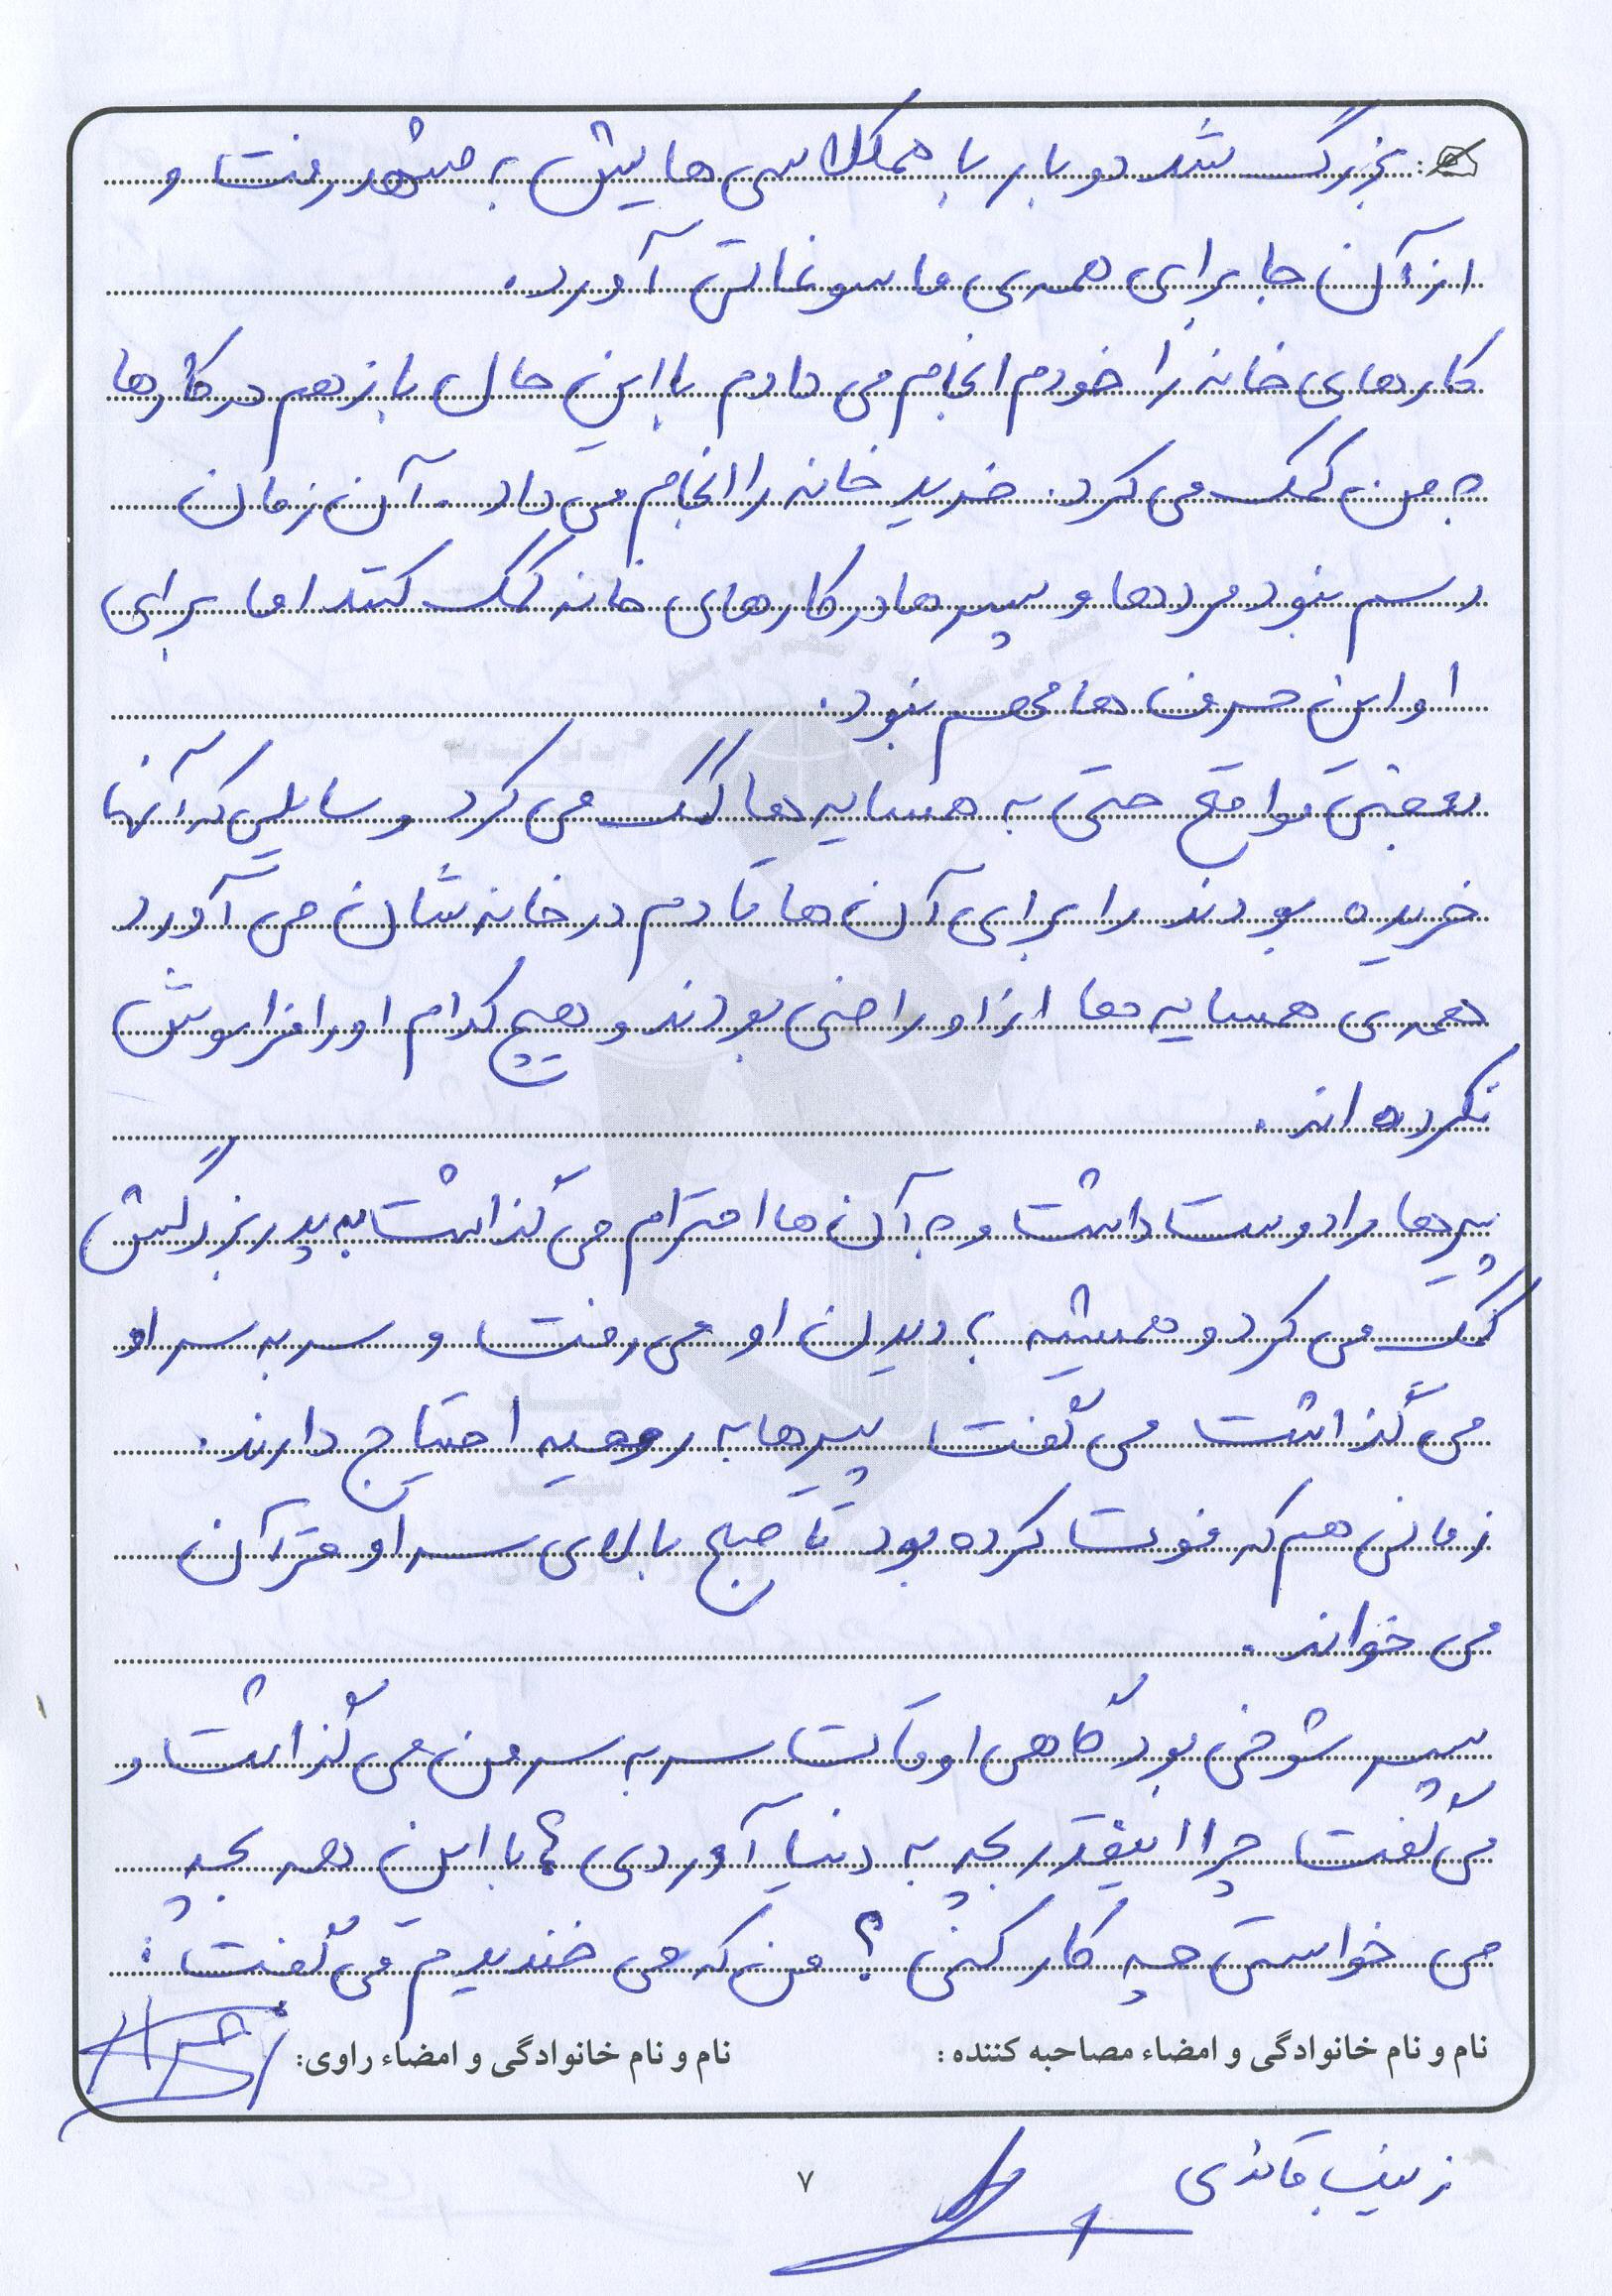 بزرگ شد دو بار با همکلاسی هایش به مشهد رفت و
از آن جا برای همه ی ما سوغاتی آورد.
کارهای خانه را خودم انجام می دادم با این حال باز هم در کارها
به من کمک می کرد. خرید خانه را انجام می داد. آن زمان
رسم نبود مردها و پسرها در کارهای خانه کمک کنند اما برای
او این حرف ها مهم نبود.
بعضی مواقع حتی به همسایه ها کمک می کرد وسایلی که آنها
خریده بودند را برای آن ها تا دم در خانه شان می آورد
همه ی همسایه ها از او راضی بودند و هیچ کدام او را فراموش
نکرده اند.
پیرها را دوست داشت و به آن ها احترام می گذاشت به پدربزرگش
کمک می کرد و همیشه به دیدن او می رفت و سر به سر او
می گذاشت می گفت پیرها به روحیه احتیاج دارند.
زمانی هم که فوت کرده بود تا صبح بالای سر او قرآن
می خواند.
پسر شوخی بود گاهی اوقات سر به سر من می گذاشت و
می گفت چرا اینقدر بچه به دنیا آوردی؟ با این همه بچه
می خواستی چه کار کنی؟ من که می خندیدم می گفت:
نام و نام خانوادگی و امضاء مصاحبه کننده: نام و نام خانوادگی و امضاء راوی:
زینب قائدی
۷